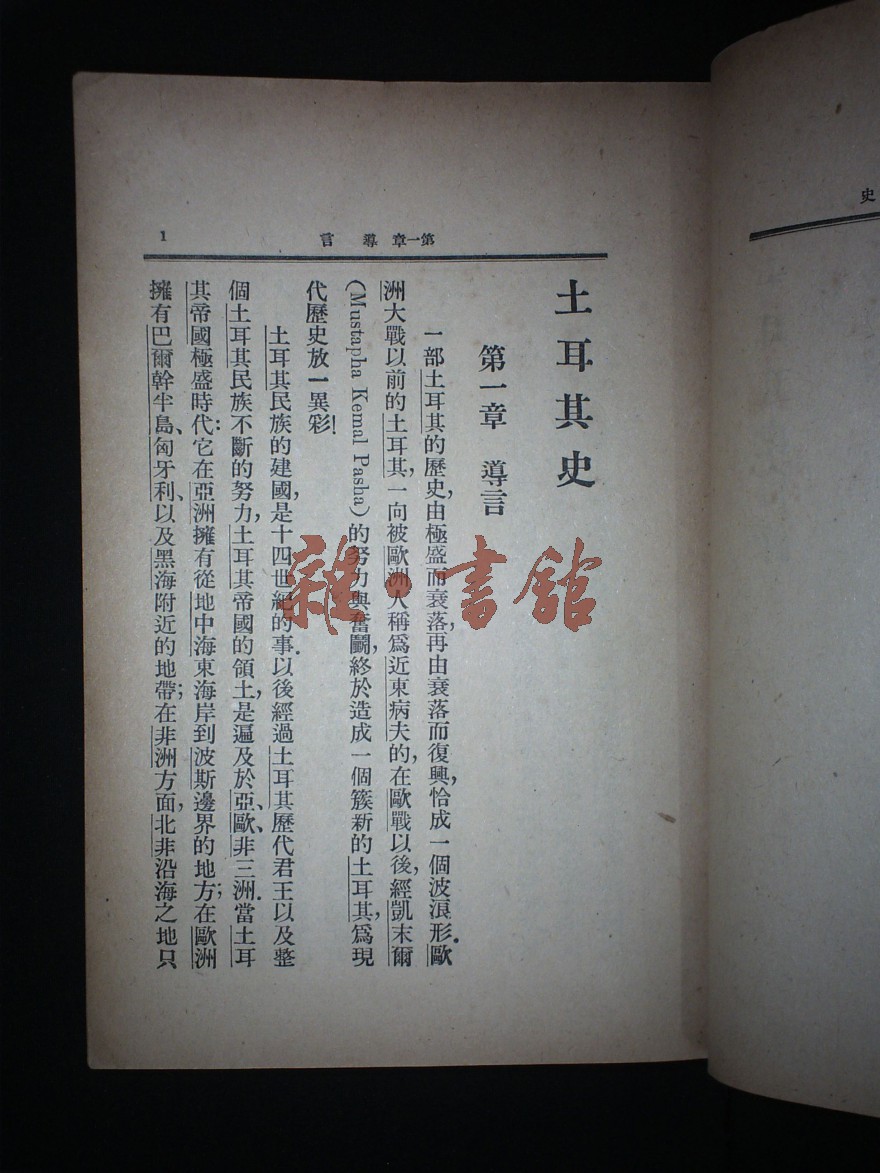 史
第一章 導言
1
土耳其史
第一章 導言
一部土耳其的歷史,由極盛而衰落,再由衰落而復興,恰成一個波浪形.歐
洲大戰以前的土耳其,一向被歐洲人稱爲近東病夫的,在歐戰以後,經凱末爾
(Mustapha Kemal Pasha)的努力與奮鬭,終於造成一個簇新的土耳其,爲現
代歷史放一異彩!
土耳其民族的建國,是十四世紀的事.以後經過土耳其歷代君王以及整
個土耳其民族不斷的努力,土耳其帝國的領土,是遍及於亞、歐、非三洲.當土耳
其帝國極盛時代:它在亞洲擁有從地中海東海岸到波斯邊界的地方;在歐洲
擁有巴爾幹半島、匈牙利、以及黑海附近的地帶;在非洲方面,北非沿海之地只
雜·書館